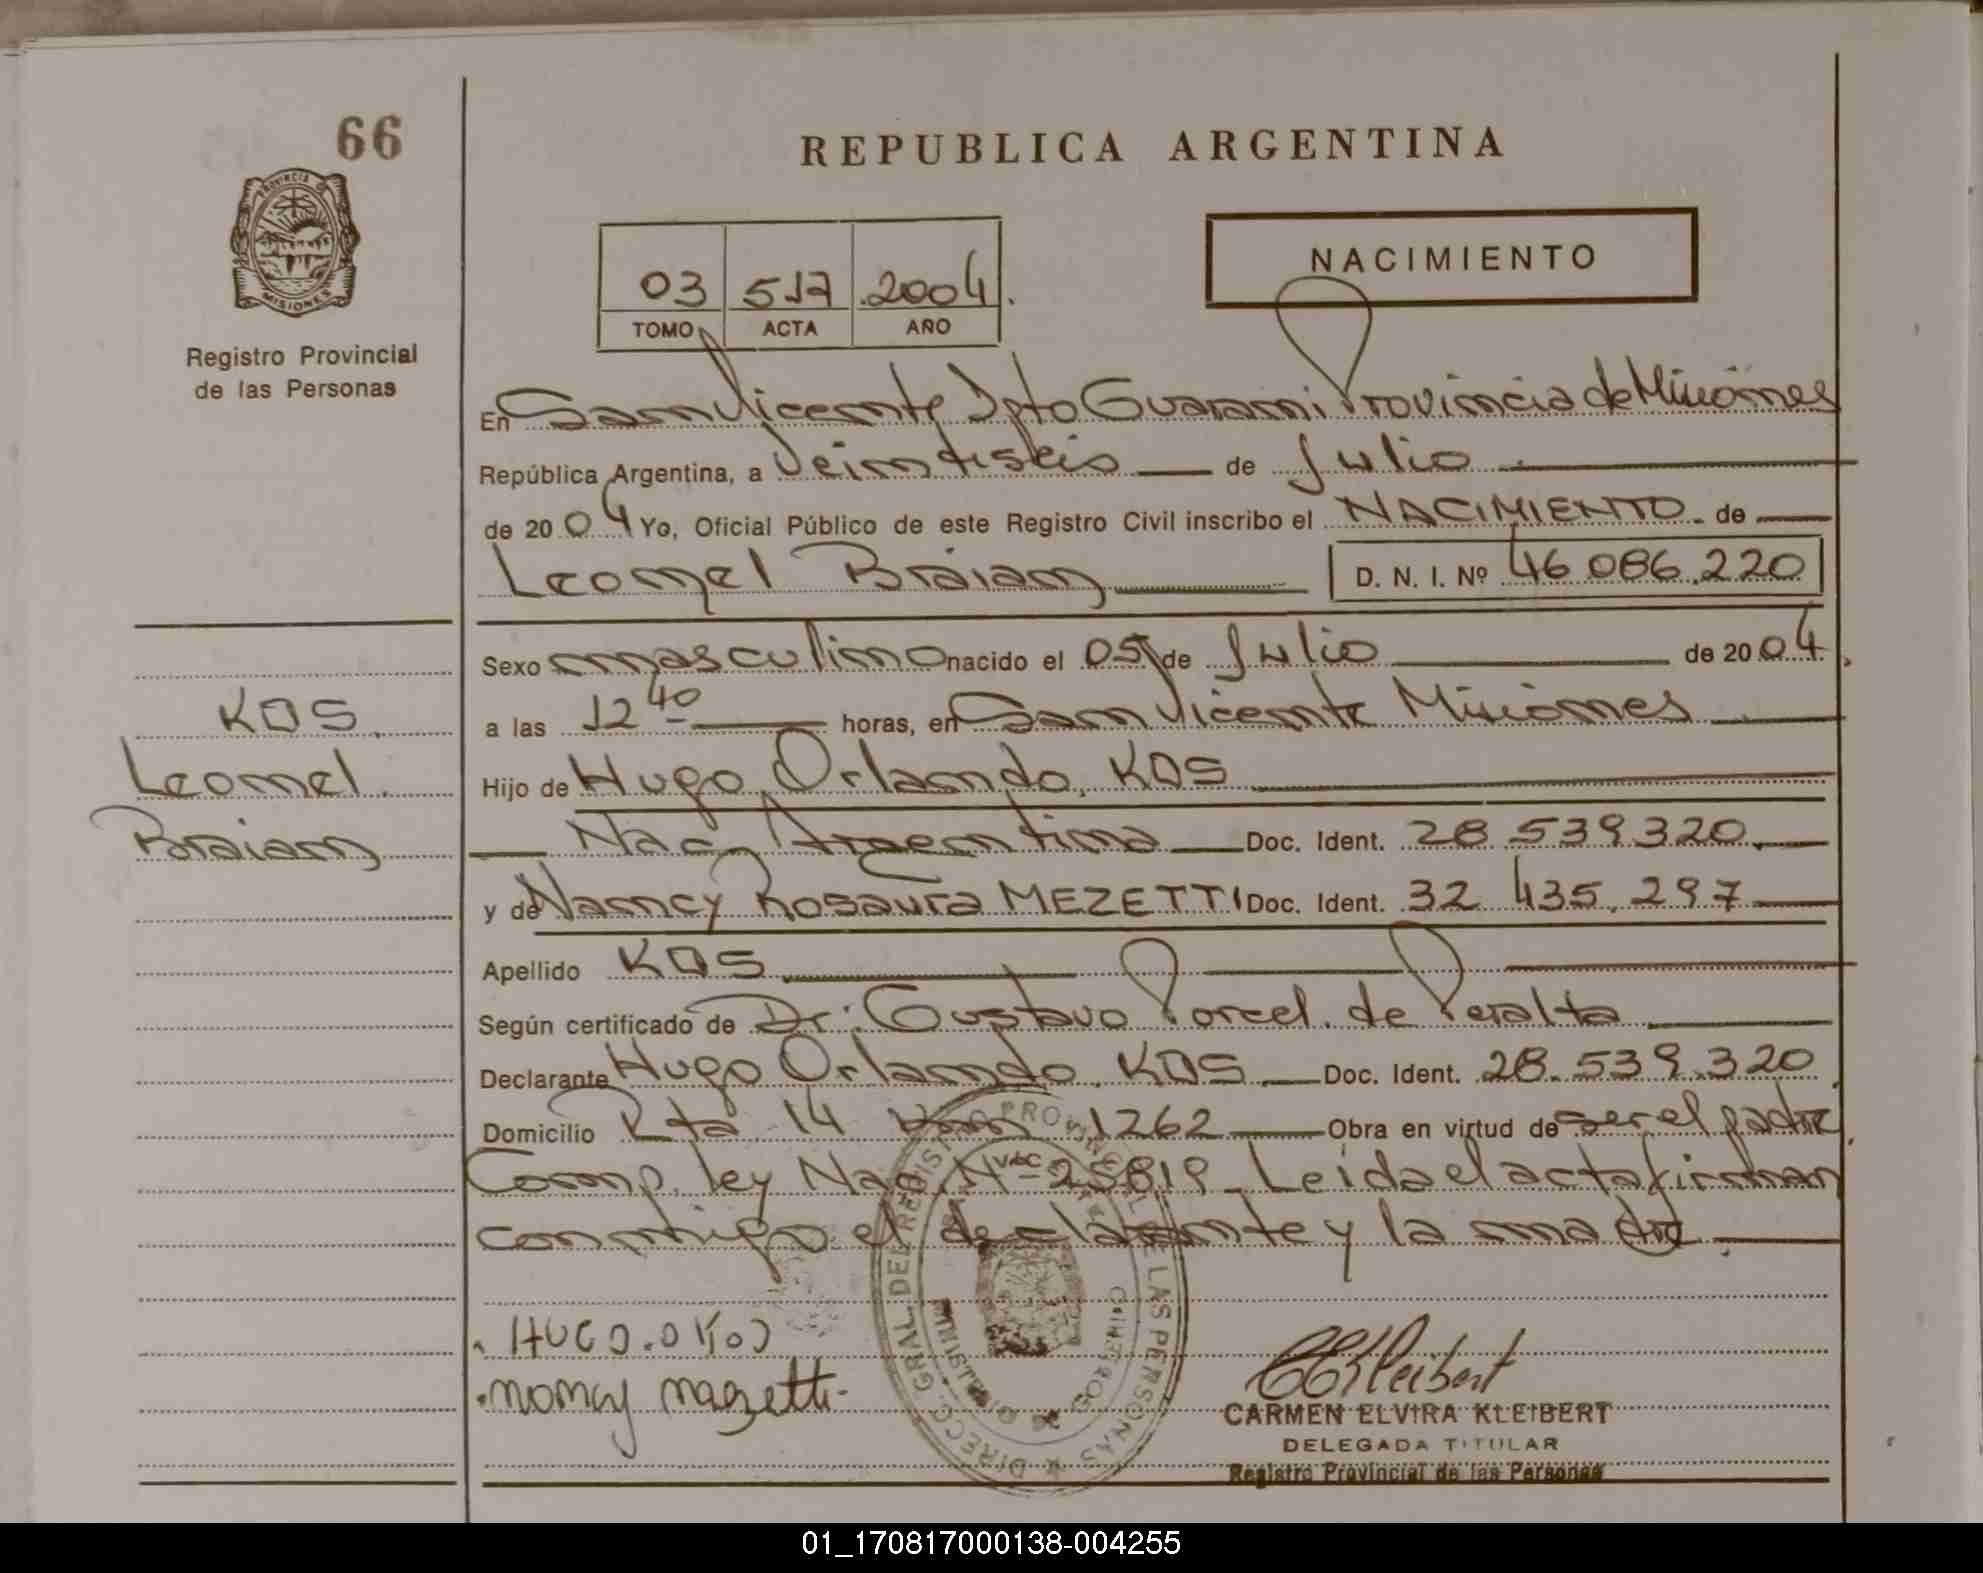 66
PROVINCIA DE
MISIONES
Registro Provincial
de las Personas
REPUBLICA ARGENTINA
03 517 2004
TOMO ACTA AÑO
NACIMIENTO
En San Vicente Dpto Guarani Provincia de Misiones
República Argentina, a Veintiseis de Julio
de 2004 Yo, Oficial Público de este Registro Civil inscribo el NACIMIENTO de
Leonel Braian D. N. I. Nº 46.086.220
Sexo masculino nacido el 05 de Julio de 2004
a las 12 40 horas, en San Vicente Misiones
Hijo de Hugo Orlando KOS
Nac. Argentina Doc. Ident. 28.539.320
y de Nancy Rosaura MEZETTI Doc. Ident. 32.435.297
Apellido KOS
Según certificado de Dr. Gustavo Porcel de Peralta
Declarante Hugo Orlando KOS Doc. Ident. 28.539.320
Domicilio Rta 14 1262 Obra en virtud de ser el padre
Comp. ley Nac. Nº 25819 Leida el acta firman
conmigo el declarante y la madre
KOS
Leonel
Braian
HUGO.O KOS
nancy mezetti
DIRECC. GRAL. DEL REGISTRO PROVINCIAL DE LAS PERSONAS
CARMEN ELVIRA KLEIBERT
DELEGADA TITULAR
Registro Provincial de las Personas
01_170817000138-004255